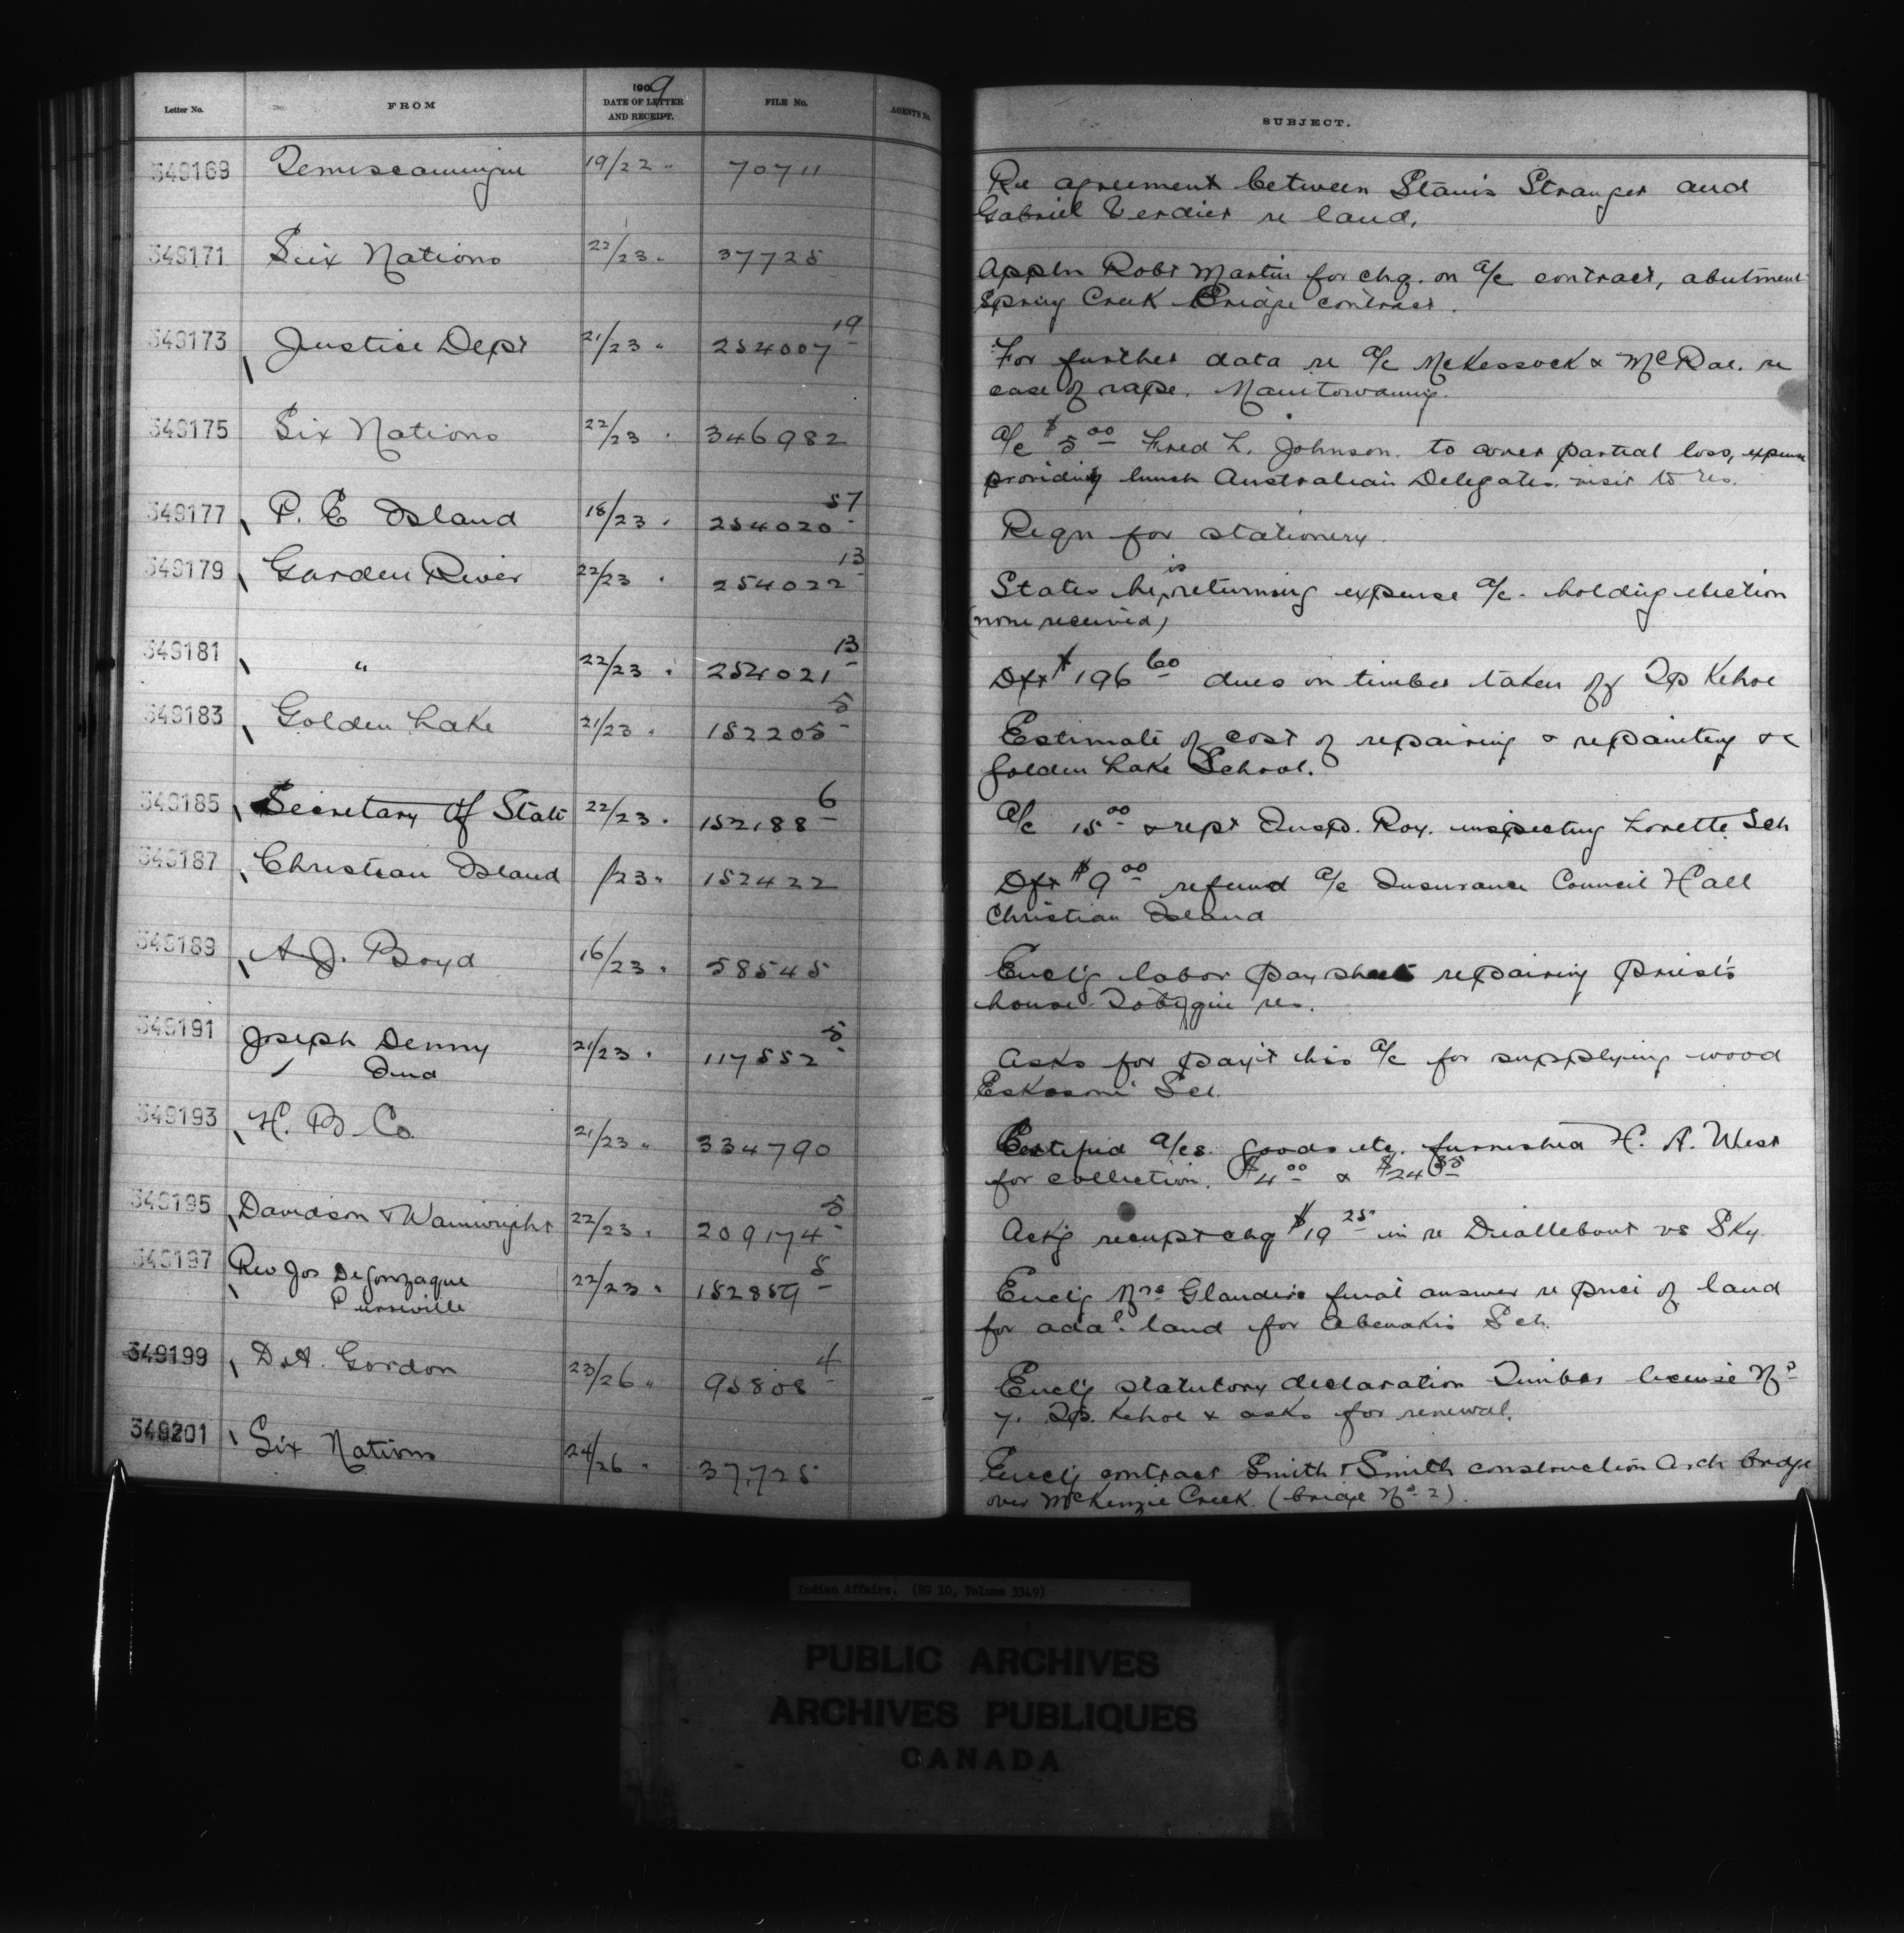 Letter No. FROM 1909 DATE OF LETTER AND RECEIPT. FILE No. AGENT'S No. SUBJECT.
349169 Temiscamingue 19/22 " 70711 Re agreement between Stanis Stranger and
Gabriel Verdier re land.
349171 Six Nations 22/23 " 37725 Appln Robt Martin for chq. on a/c contract, abutment
Spring Creek Bridge contract.
349173 Justice Dept 21/23 " 254007 19 For further data re a/c McKessock & McRae. re
case of rape. Manitowaning.
349175 Six Nations 22/23 " 346982 a/c $5 00 Fred L. Johnson. to cover partial loss, expense
providing lunch Australian Delegates. visit to res.
349177 P. E Island 18/23 " 254020 57 Reqn for stationery.
349179 Garden River 22/23 " 254022 13 States he is returning expense a/c. holding election
(none received)
349181 " 22/23 " 254021 13 Dft $196 60 dues on timber taken off Tp Kehoe
349183 Golden Lake 21/23 " 152205 5 Estimate of cost of repairing & repainting &c
Golden Lake School.
349185 Secretary of State 22/23 " 152188 6 a/c 15 00 & rept Insp. Roy. inspecting Lorette Sch
349187 Christian Island /23 " 152422 Dft $9 00 refund a/c Insurance Council Hall
Christian Island
349189 A.J. Boyd 16/23 " 58545 Encl'g labor pay sheet repairing priest's
house Tobique res.
349191 Joseph Denny 21/23 " 117552 5 Asks for pay't his a/c for supplying wood
Ind Eskasoni Sch.
349193 H. B Co. 21/23 " 334790 Certified a/cs. goods etc. furnished H. A. West
for collection. $4 00 & $24 35
349195 Davidson & Wainwright 22/23 " 209174 5 Ack'g receipt chq $19 25 in re Diallebout vs Sky.
349197 Rev Jos DeGonzague 22/23 " 152859 5 Encl'g Mrs Glandis final answer re price of land
Pierreville for adal. land for Abenakis Sch.
349199 D.A. Gordon 23/26 " 95808 4 Encl'g statutory declaration Timber license No
7. Tp. Kehoe & asks for renewal.
349201 Six Nations 24/26 " 37,725 Encl'g contract Smith & Smith construction Arch bridge
over McKenzie Creek. (bridge No 2).
Indian Affairs. (RG 10, Volume 3349)
PUBLIC ARCHIVES
ARCHIVES PUBLIQUES
CANADA